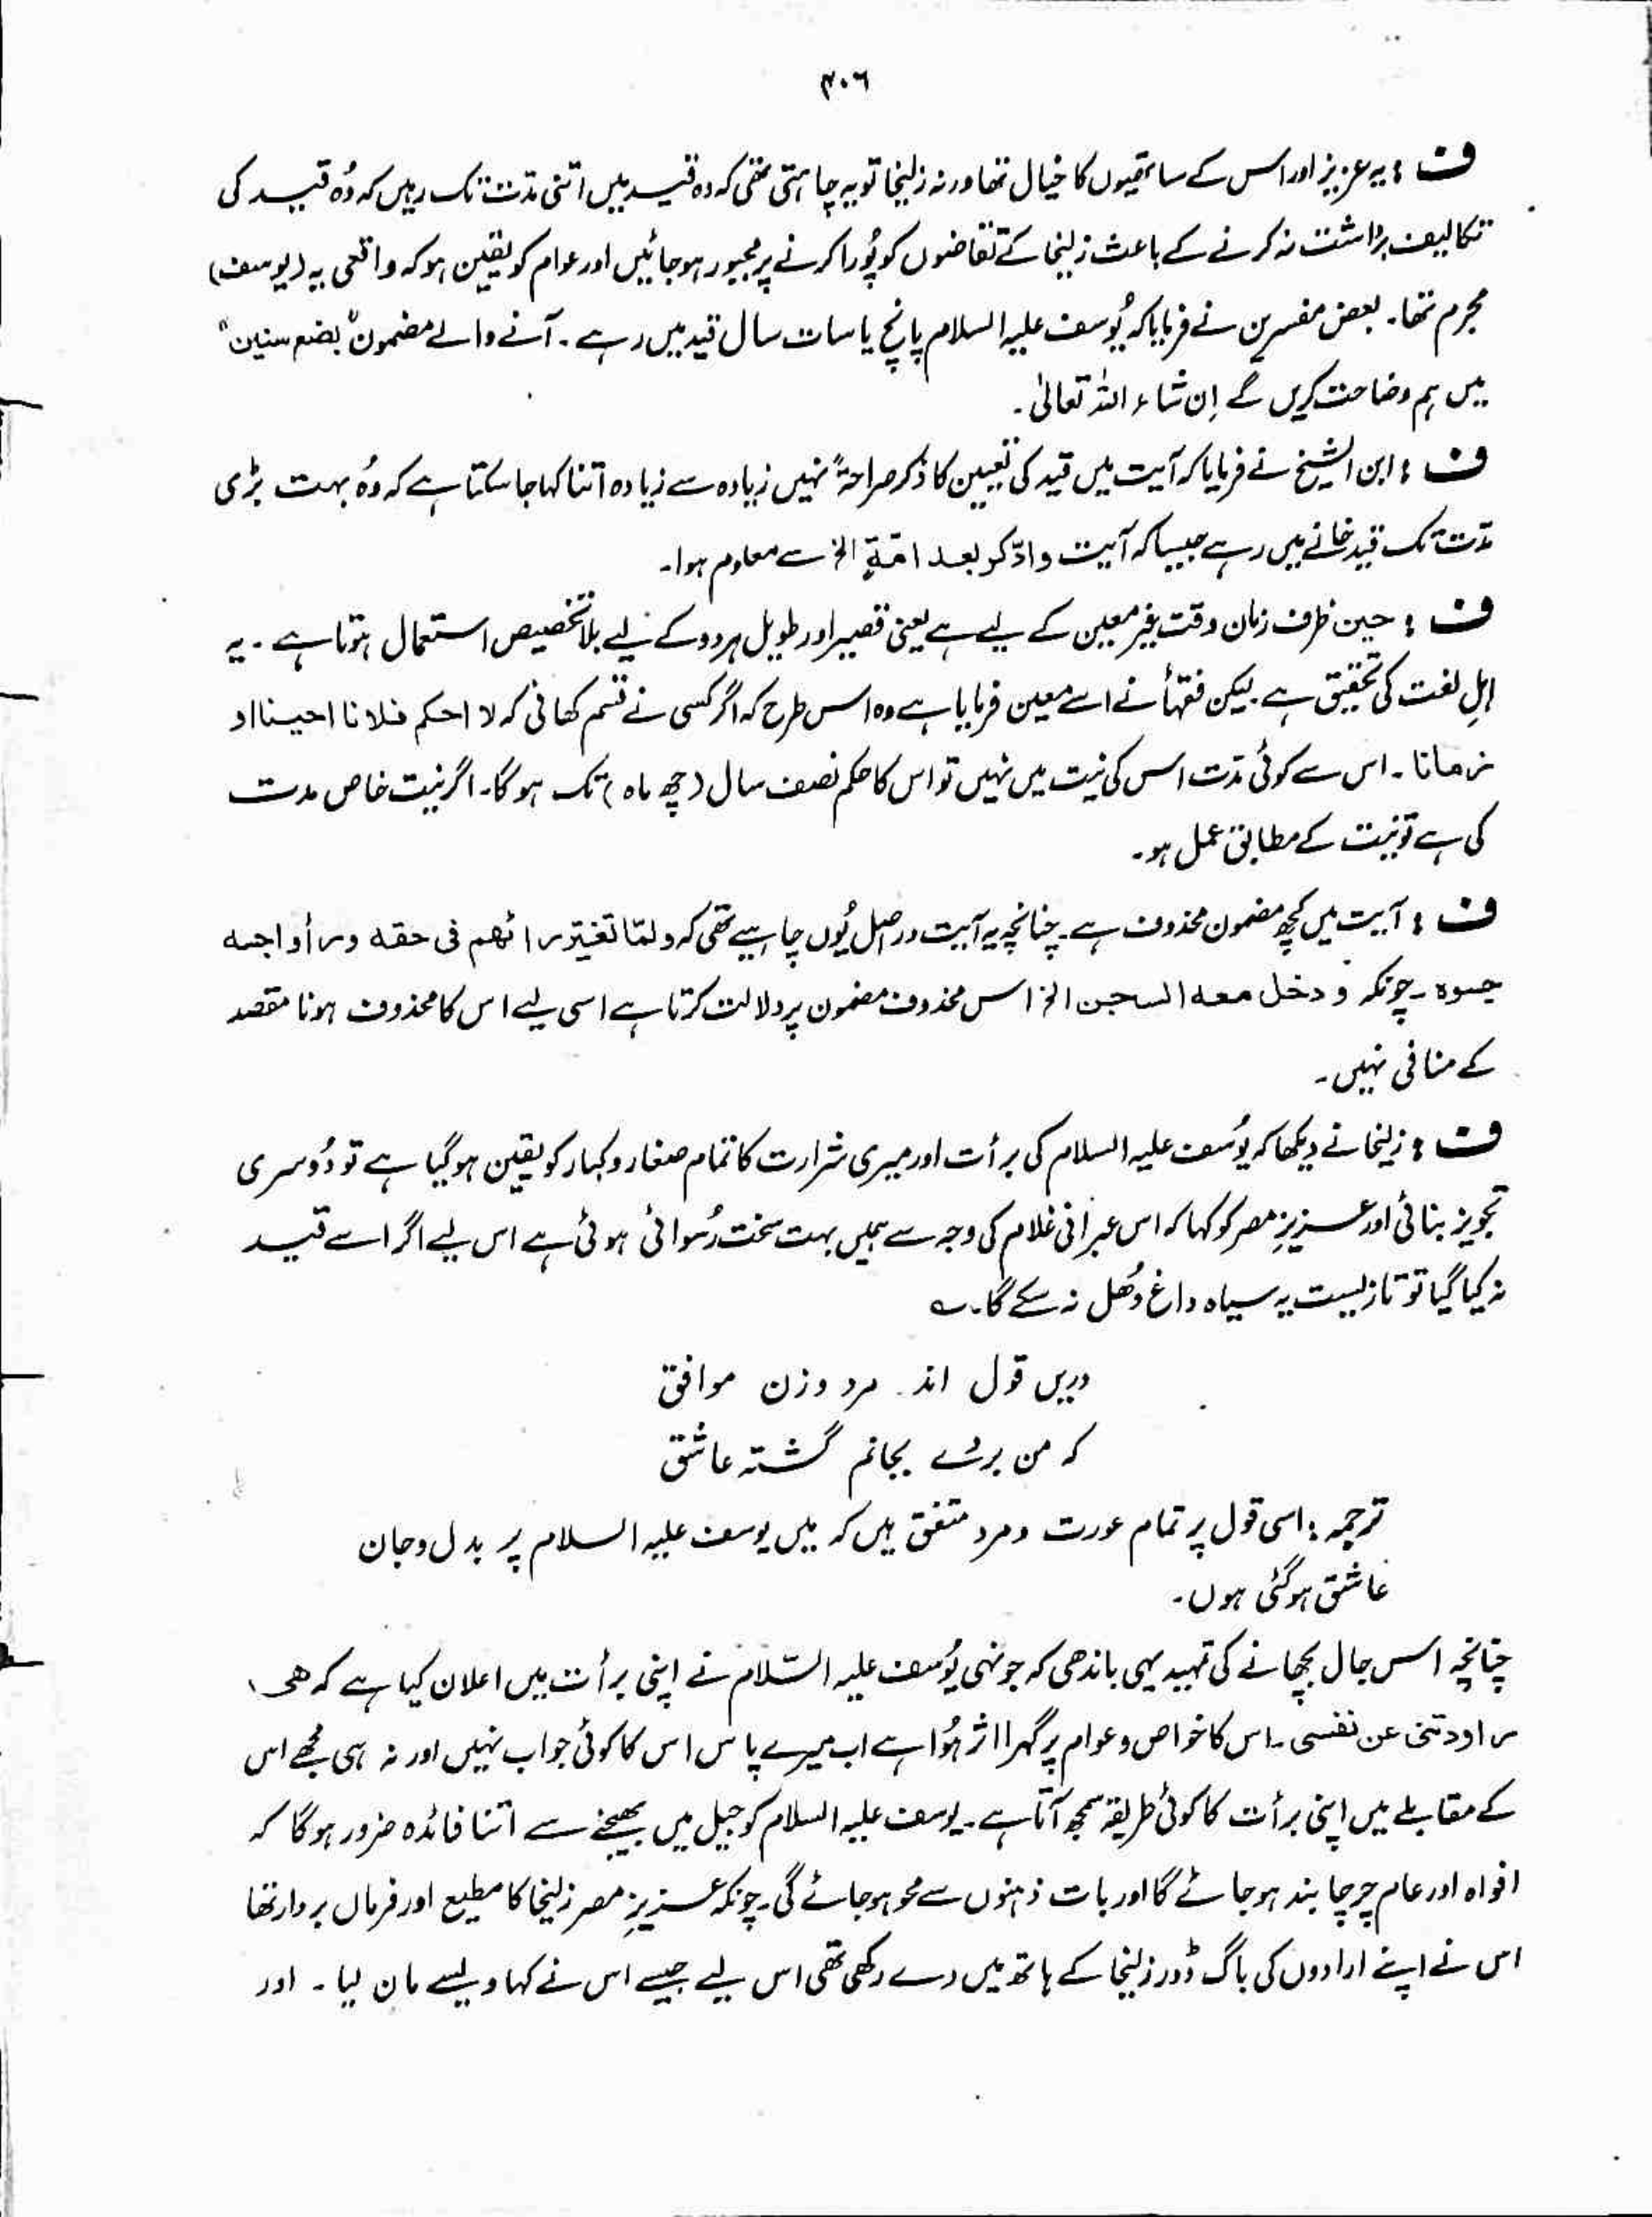 ۴۰۶
ف : یہ عزیز اور اس کے ساتھیوں کا خیال تھا ورنہ زلیخا تو یہ چاہتی تھی کہ وہ قید میں اتنی مدّت تک رہیں کہ وُہ قید کی
تکالیف برداشت نہ کرنے کے باعث زلیخا کے تقاضوں کو پُورا کرنے پر مجبور ہو جائیں اور عوام کو یقین ہو کہ واقعی یہ (یوسف)
مجرم تھا۔ بعض مفسرین نے فرمایا کہ یُوسف علیہ السلام پانچ یا سات سال قید میں رہے۔ آنے والے مضمون "بضع سنین"
میں ہم وضاحت کریں گے اِن شاء اللہ تعالیٰ۔
ف : ابن الشیخ نے فرمایا کہ آیت میں قید کی تعیین کا ذکر صراحۃً نہیں زیادہ سے زیادہ اتنا کہا جا سکتا ہے کہ وُہ بہت بڑی
مدّت تک قید خانے میں رہے جیسا کہ آیت وادّکر بعد امّۃٍ الخ سے معلوم ہوا۔
ف : حین ظرف زمان وقت غیر معین کے لیے ہے یعنی قصیر اور طویل ہر دو کے لیے بلا تخصیص استعمال ہوتا ہے۔ یہ
اہلِ لغت کی تحقیق ہے۔ لیکن فقہأ نے اسے معین فرمایا ہے وہ اس طرح کہ اگر کسی نے قسم کھائی کہ لا احکم فلانا احینا او
زمانا۔ اس سے کوئی مدّت اس کی نیت میں نہیں تو اس کا حکم نصف سال (چھ ماہ) تک ہوگا۔ اگر نیت خاص مدت
کی ہے تو نیت کے مطابق عمل ہو۔
ف : آیت میں کچھ مضمون محذوف ہے۔ چنانچہ یہ آیت دراصل یُوں چاہیے تھی کہ ولمّا تغیّر رائھم فی حقہ ورأوا جبہ
حبسوہ۔ چونکہ و دخل معہ السجن الخ اس محذوف مضمون پر دلالت کرتا ہے اسی لیے اس کا محذوف ہونا مقصد
کے منافی نہیں۔
ف : زلیخا نے دیکھا کہ یُوسف علیہ السلام کی برأت اور میری شرارت کا تمام صغار و کبار کو یقین ہو گیا ہے تو دُوسری
تجویز بنائی اور عزیزِ مصر کو کہا کہ اس عبرانی غلام کی وجہ سے ہمیں بہت سخت رُسوائی ہوئی ہے اس لیے اگر اسے قید
نہ کیا گیا تو تازیست یہ سیاہ داغ دُھل نہ سکے گا۔ ؎
دریں قول اند مرد وزن موافق
کہ من بروے بجانم گشتہ عاشق
ترجمہ : اسی قول پر تمام عورت و مرد متفق ہیں کہ میں یوسف علیہ السلام پر بدل وجان
عاشق ہو گئی ہوں۔
چنانچہ اس جال بچھانے کی تمہید یہی باندھی کہ جونہی یُوسف علیہ السّلام نے اپنی برأت میں اعلان کیا ہے کہ ھی
راودتنی عن نفسی۔ اس کا خواص و عوام پر گہرا اثر ہُوا ہے اب میرے پاس اس کا کوئی جواب نہیں اور نہ ہی مجھے اس
کے مقابلے میں اپنی برأت کا کوئی طریقہ سمجھ آتا ہے۔ یوسف علیہ السلام کو جیل میں بھیجنے سے اتنا فائدہ ضرور ہوگا کہ
افواہ اور عام چرچا بند ہو جائے گا اور بات ذہنوں سے محو ہو جائے گی۔ چونکہ عزیزِ مصر زلیخا کا مطیع اور فرماں بردار تھا
اس نے اپنے ارادوں کی باگ ڈور زلیخا کے ہاتھ میں دے رکھی تھی اس لیے جیسے اس نے کہا ویسے مان لیا۔ اور